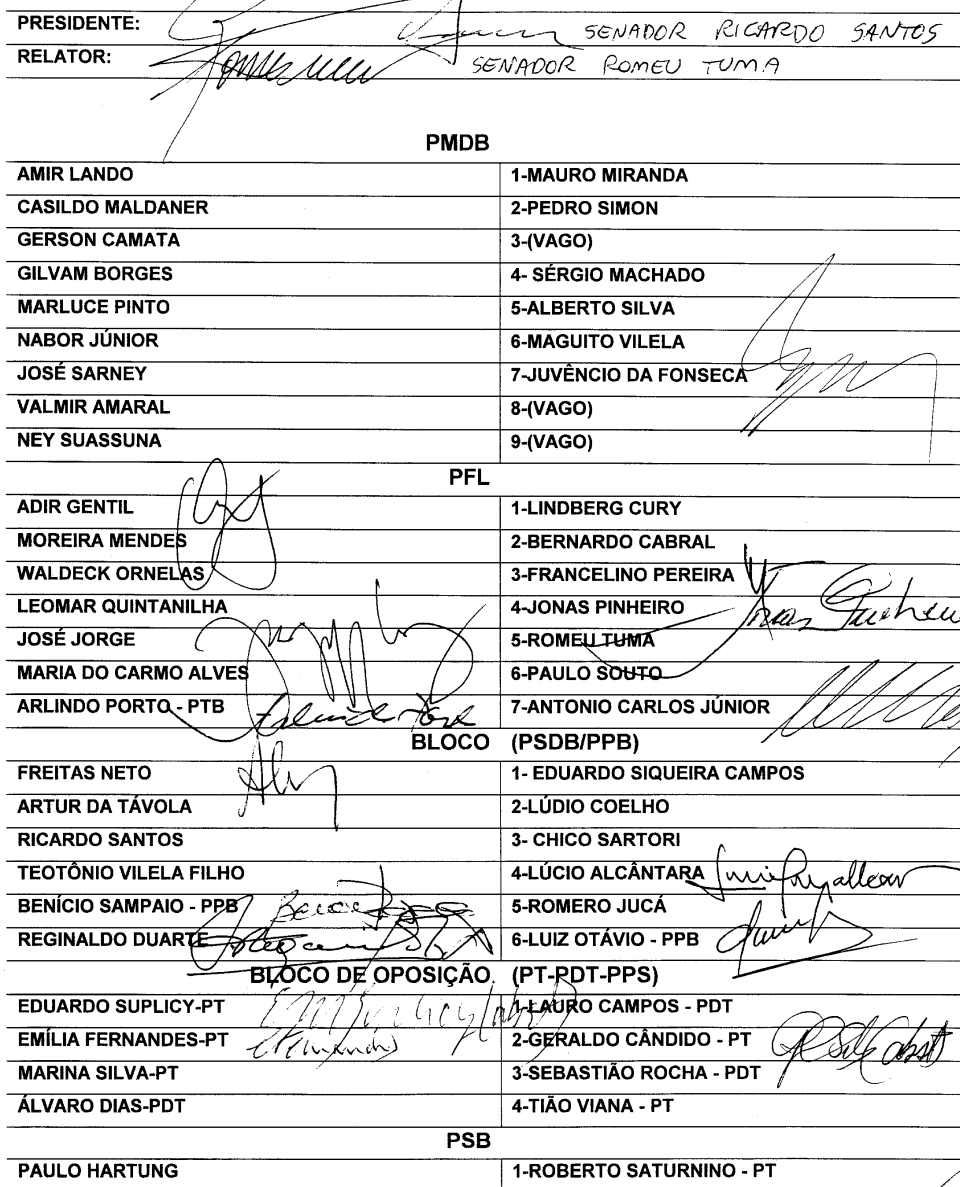 PRESIDENTE: SENADOR RICARDO SANTOS
RELATOR: SENADOR ROMEU TUMA
PMDB
AMIR LANDO 1-MAURO MIRANDA
CASILDO MALDANER 2-PEDRO SIMON
GERSON CAMATA 3-(VAGO)
GILVAM BORGES 4- SÉRGIO MACHADO
MARLUCE PINTO 5-ALBERTO SILVA
NABOR JÚNIOR 6-MAGUITO VILELA
JOSÉ SARNEY 7-JUVÊNCIO DA FONSECA
VALMIR AMARAL 8-(VAGO)
NEY SUASSUNA 9-(VAGO)
PFL
ADIR GENTIL 1-LINDBERG CURY
MOREIRA MENDES 2-BERNARDO CABRAL
WALDECK ORNELAS 3-FRANCELINO PEREIRA
LEOMAR QUINTANILHA 4-JONAS PINHEIRO
JOSÉ JORGE 5-ROMEU TUMA
MARIA DO CARMO ALVES 6-PAULO SOUTO
ARLINDO PORTO - PTB 7-ANTONIO CARLOS JÚNIOR
BLOCO (PSDB/PPB)
FREITAS NETO 1- EDUARDO SIQUEIRA CAMPOS
ARTUR DA TÁVOLA 2-LÚDIO COELHO
RICARDO SANTOS 3- CHICO SARTORI
TEOTÔNIO VILELA FILHO 4-LÚCIO ALCÂNTARA
BENÍCIO SAMPAIO - PPB 5-ROMERO JUCÁ
REGINALDO DUARTE 6-LUIZ OTÁVIO - PPB
BLOCO DE OPOSIÇÃO (PT-PDT-PPS)
EDUARDO SUPLICY-PT 1-LAURO CAMPOS - PDT
EMÍLIA FERNANDES-PT 2-GERALDO CÂNDIDO - PT
MARINA SILVA-PT 3-SEBASTIÃO ROCHA - PDT
ÁLVARO DIAS-PDT 4-TIÃO VIANA - PT
PSB
PAULO HARTUNG 1-ROBERTO SATURNINO - PT